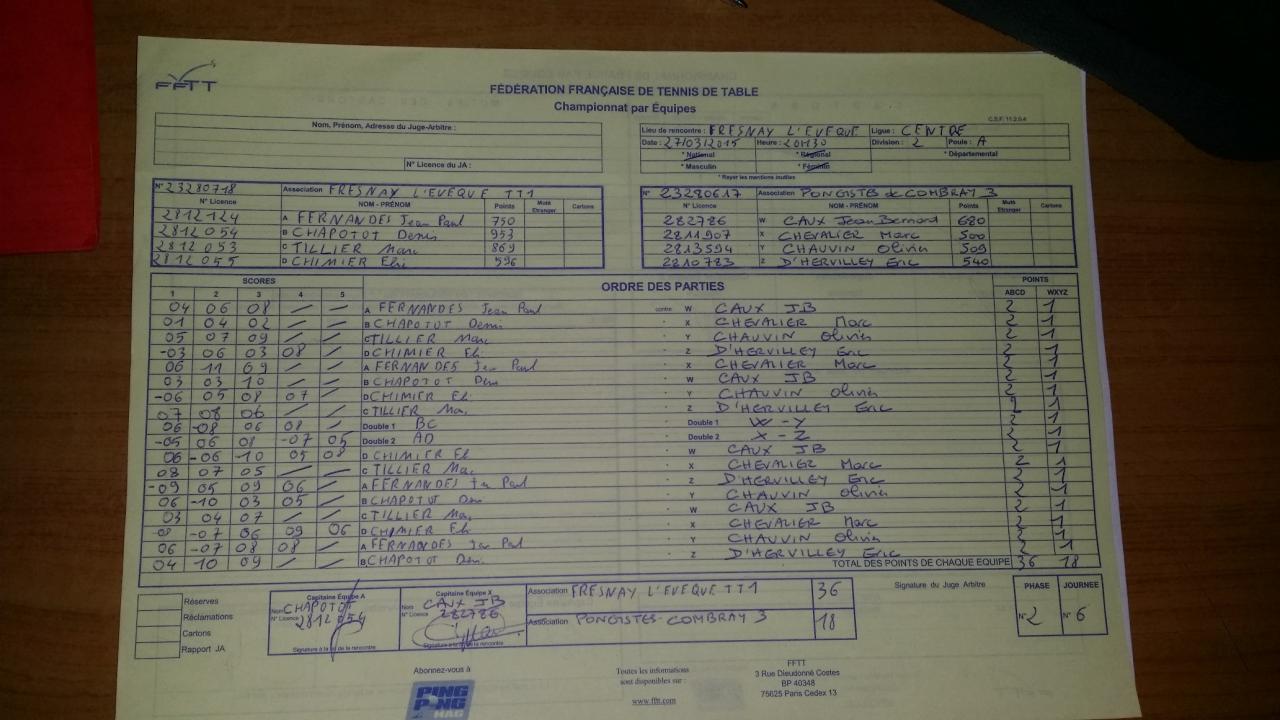 FFTT
FÉDÉRATION FRANÇAISE DE TENNIS DE TABLE
Championnat par Équipes
C.S.F. 11.2.0.4
Nom, Prénom, Adresse du Juge-Arbitre :
N° Licence du JA :
Lieu de rencontre : FRESNAY L'EVEQUE Ligue : CENTRE
Date : 27/03/2015 Heure : 20H30 Division : 2 Poule : A
* National * Régional * Départemental
* Masculin * Féminin
* Rayer les mentions inutiles
N° 23280718 Association FRESNAY L'EVEQUE TT1
N° Licence NOM - PRÉNOM Points Muté Etranger Cartons
2812124 A FERNANDES Jean Paul 750
2812054 B CHAPOTOT Denis 953
2812053 C TILLIER Marc 869
2812055 D CHIMIER Eli 596
N° 23280617 Association PONGISTES de COMBRAY 3
N° Licence NOM - PRÉNOM Points Muté Etranger Cartons
282786 W CAUX Jean Bernard 680
2811907 X CHEVALIER Marc 500
2813594 Y CHAUVIN Olivier 509
2810783 Z D'HERVILLEY Eric 540
SCORES ORDRE DES PARTIES POINTS
1 2 3 4 5 ABCD WXYZ
04 06 08 / / A FERNANDES Jean Paul contre W CAUX JB 2 1
01 04 02 / / B CHAPOTOT Denis X CHEVALIER Marc 2 1
05 07 09 / / C TILLIER Marc Y CHAUVIN Olivier 2 1
-03 06 03 08 / D CHIMIER Eli Z D'HERVILLEY Eric 2 1
06 11 09 / / A FERNANDES Jean Paul X CHEVALIER Marc 2 1
03 03 10 / / B CHAPOTOT Denis W CAUX JB 2 1
-06 05 08 07 / D CHIMIER Eli Y CHAUVIN Olivier 2 1
07 08 06 / / C TILLIER Marc Z D'HERVILLEY Eric 2 1
06 -08 06 08 / Double 1 BC Double 1 W - Y 2 1
-05 06 08 -07 05 Double 2 AD Double 2 X - Z 2 1
06 -06 -10 05 08 D CHIMIER Eli W CAUX JB 2 1
08 07 05 / / C TILLIER Marc X CHEVALIER Marc 2 1
-09 05 09 06 / A FERNANDES Jean Paul Z D'HERVILLEY Eric 2 1
06 -10 03 05 / B CHAPOTOT Denis Y CHAUVIN Olivier 2 1
03 04 07 / / C TILLIER Marc W CAUX JB 2 1
-07 06 09 06 D CHIMIER Eli X CHEVALIER Marc 2 1
06 -07 08 08 / A FERNANDES Jean Paul Y CHAUVIN Olivier 2 1
04 10 09 / / B CHAPOTOT Denis Z D'HERVILLEY Eric 2 1
TOTAL DES POINTS DE CHAQUE EQUIPE 36 18
Réserves
Réclamations
Cartons
Rapport JA
Capitaine Équipe A
Nom CHAPOTOT
N° Licence 2812054
Signature à la fin de la rencontre
Capitaine Équipe X
Nom CAUX JB
N° Licence 282786
Signature à la fin de la rencontre
Association FRESNAY L'EVEQUE TT1 36
Association PONGISTES COMBRAY 3 18
Signature du Juge Arbitre
PHASE JOURNEE
N° 2 N° 6
Abonnez-vous à
PING PONG MAG
Toutes les informations
sont disponibles sur :
www.fftt.com
FFTT
3 Rue Dieudonné Costes
BP 40348
75625 Paris Cedex 13